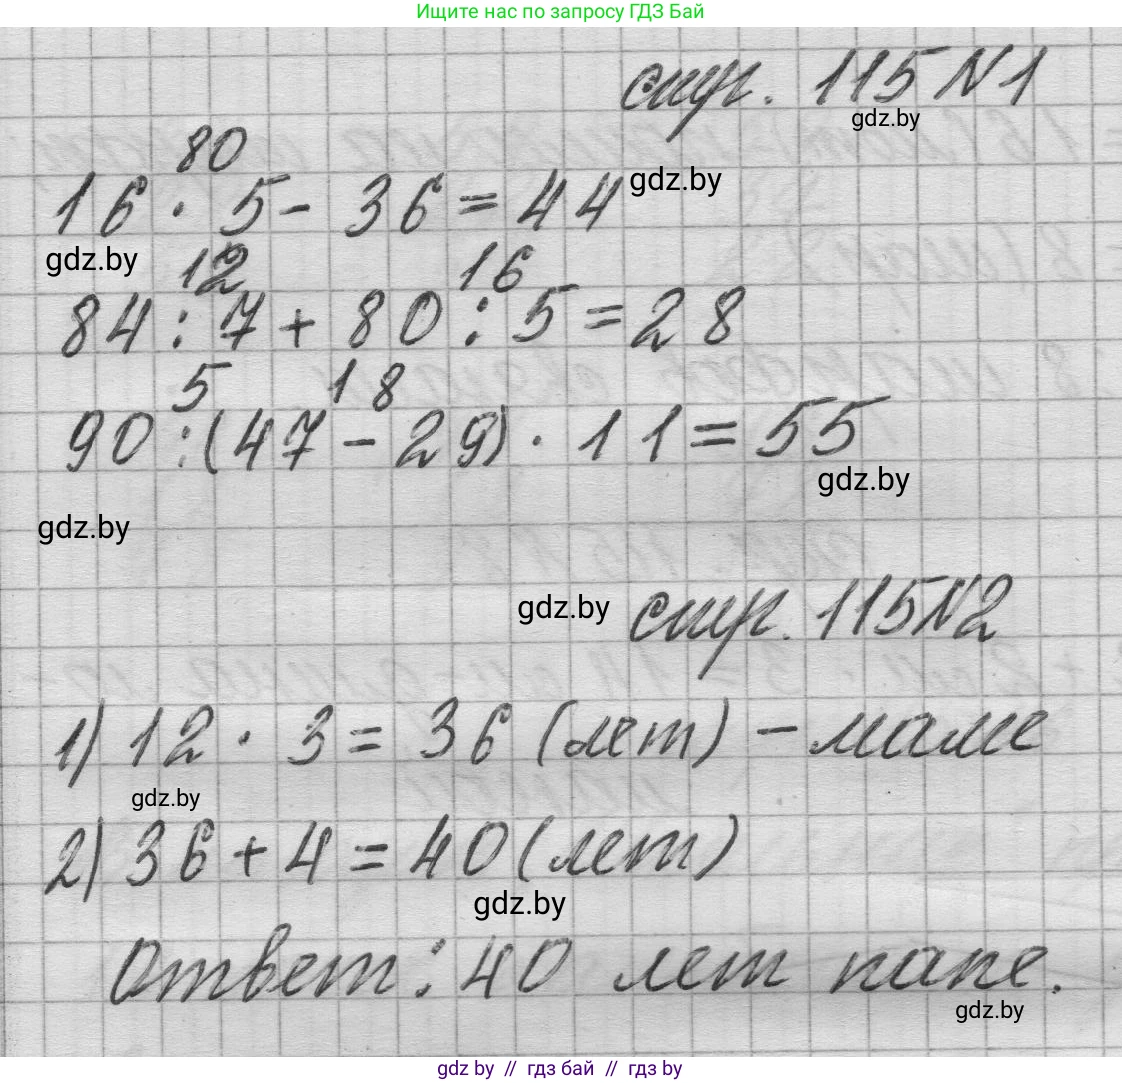 Ищите нас по запросу ГДЗ Бай
стр. 115 N1
gdz.by
80
16 · 5 - 36 = 44
gdz.by
gdz.by
12 16
84 : 7 + 80 : 5 = 28
5 18
90 : (47 - 29) · 11 = 55
gdz.by
gdz.by
gdz.by
стр. 115 N2
1) 12 · 3 = 36 (лет) - маме
gdz.by
2) 36 + 4 = 40 (лет)
gdz.by
Ответ: 40 лет папе.
gdz.by
gdz.by // гдз бай // gdz.by